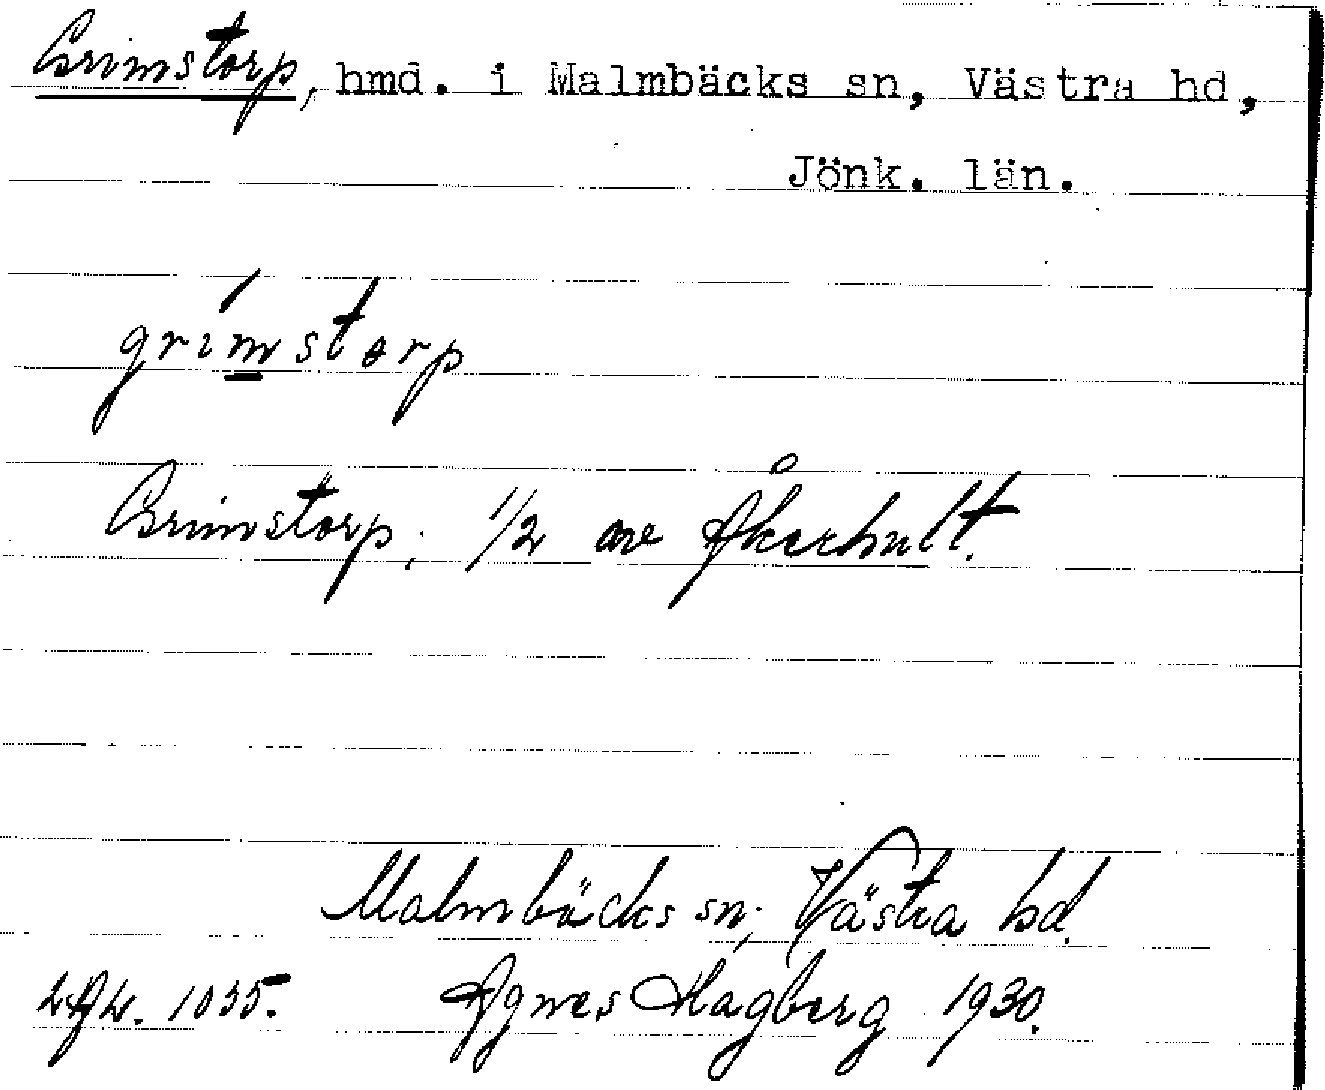 Grimstorp, hmd. i Malmbäcks sn, Västra hd,
Jönk. län.
grim̲storp
Grimstorp; 1/2 av Åkerhult.
Malmbäcks sn, Västra hd.
1035. Agnes Hagberg 1930.